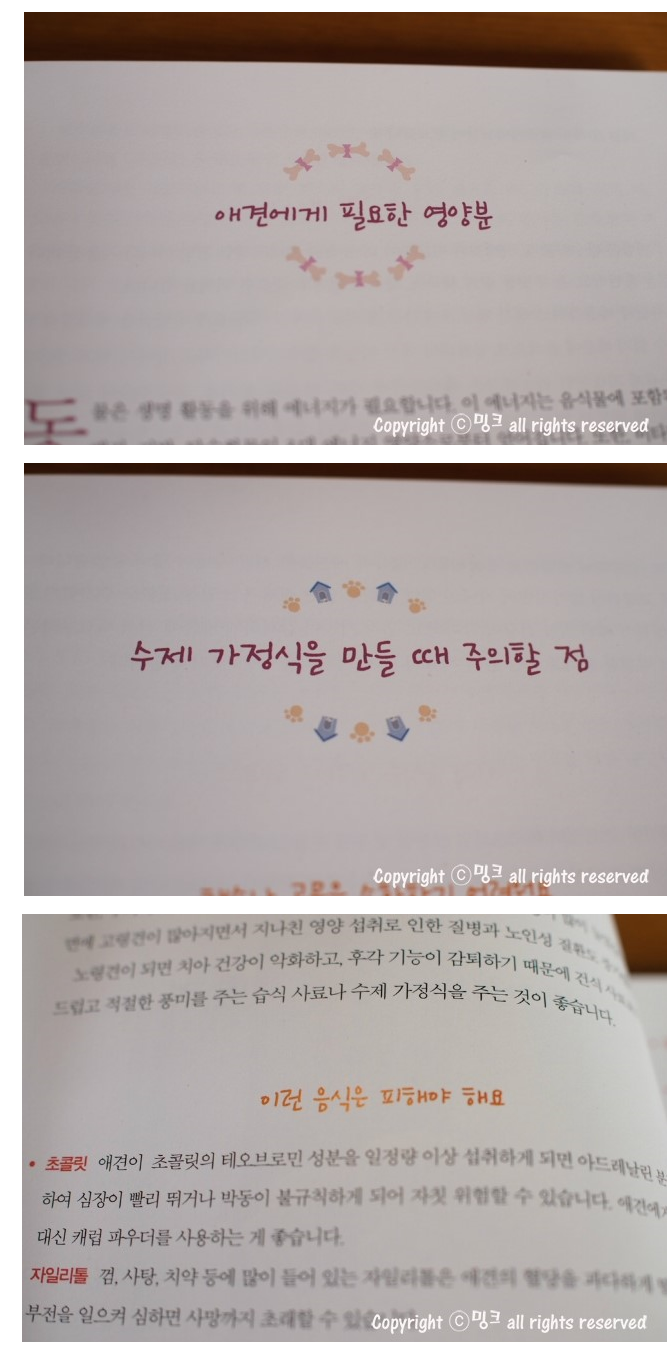 애견에게 필요한 영양분
동물은 생명 활동을 위해 에너지가 필요합니다. 이 에너지는 음식물에 포함
Copyright ⓒ밍크 all rights reserved
수제 가정식을 만들 때 주의할 점
Copyright ⓒ밍크 all rights reserved
면에 고령견이 많아지면서 지나친 영양 섭취로 인한 질병과 노인성 질환도
노령견이 되면 치아 건강이 악화하고, 후각 기능이 감퇴하기 때문에 건식
드럽고 적절한 풍미를 주는 습식 사료나 수제 가정식을 주는 것이 좋습니다.
이런 음식은 피해야 해요
• 초콜릿 애견이 초콜릿의 테오브로민 성분을 일정량 이상 섭취하게 되면 아드레날린
하여 심장이 빨리 뛰거나 박동이 불규칙하게 되어 자칫 위험할 수 있습니다. 애견에게
대신 캐럽 파우더를 사용하는 게 좋습니다.
자일리톨 껌, 사탕, 치약 등에 많이 들어 있는 자일리톨은 애견의 혈당을 과다하게
부전을 일으켜 심하면 사망까지 초래할 수
Copyright ⓒ밍크 all rights reserved